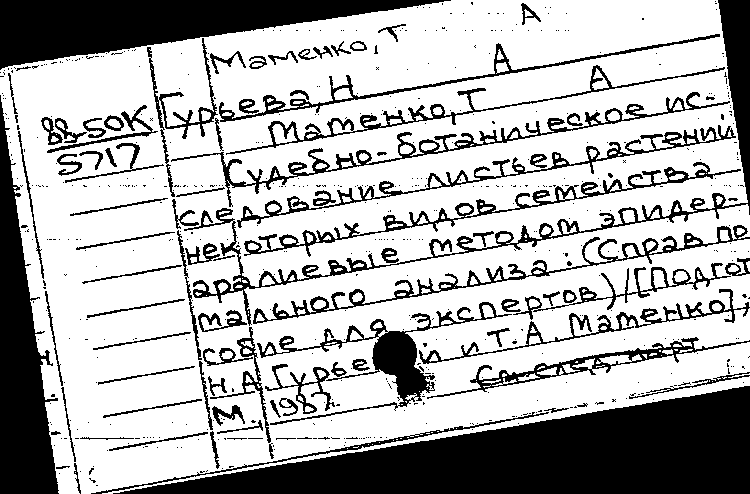 Матенко, Т А
88-50К Гурьева, Н А
5717 Матенко, Т А
Судебно-ботаническое ис-
следование листьев растений
некоторых видов семейства
аралиевые методом эпидер-
мального анализа: (Справ по
собие для экспертов)/[Подгот
Н.А.Гурье й и Т.А. Матенко];
М., 1987 См след. карт.